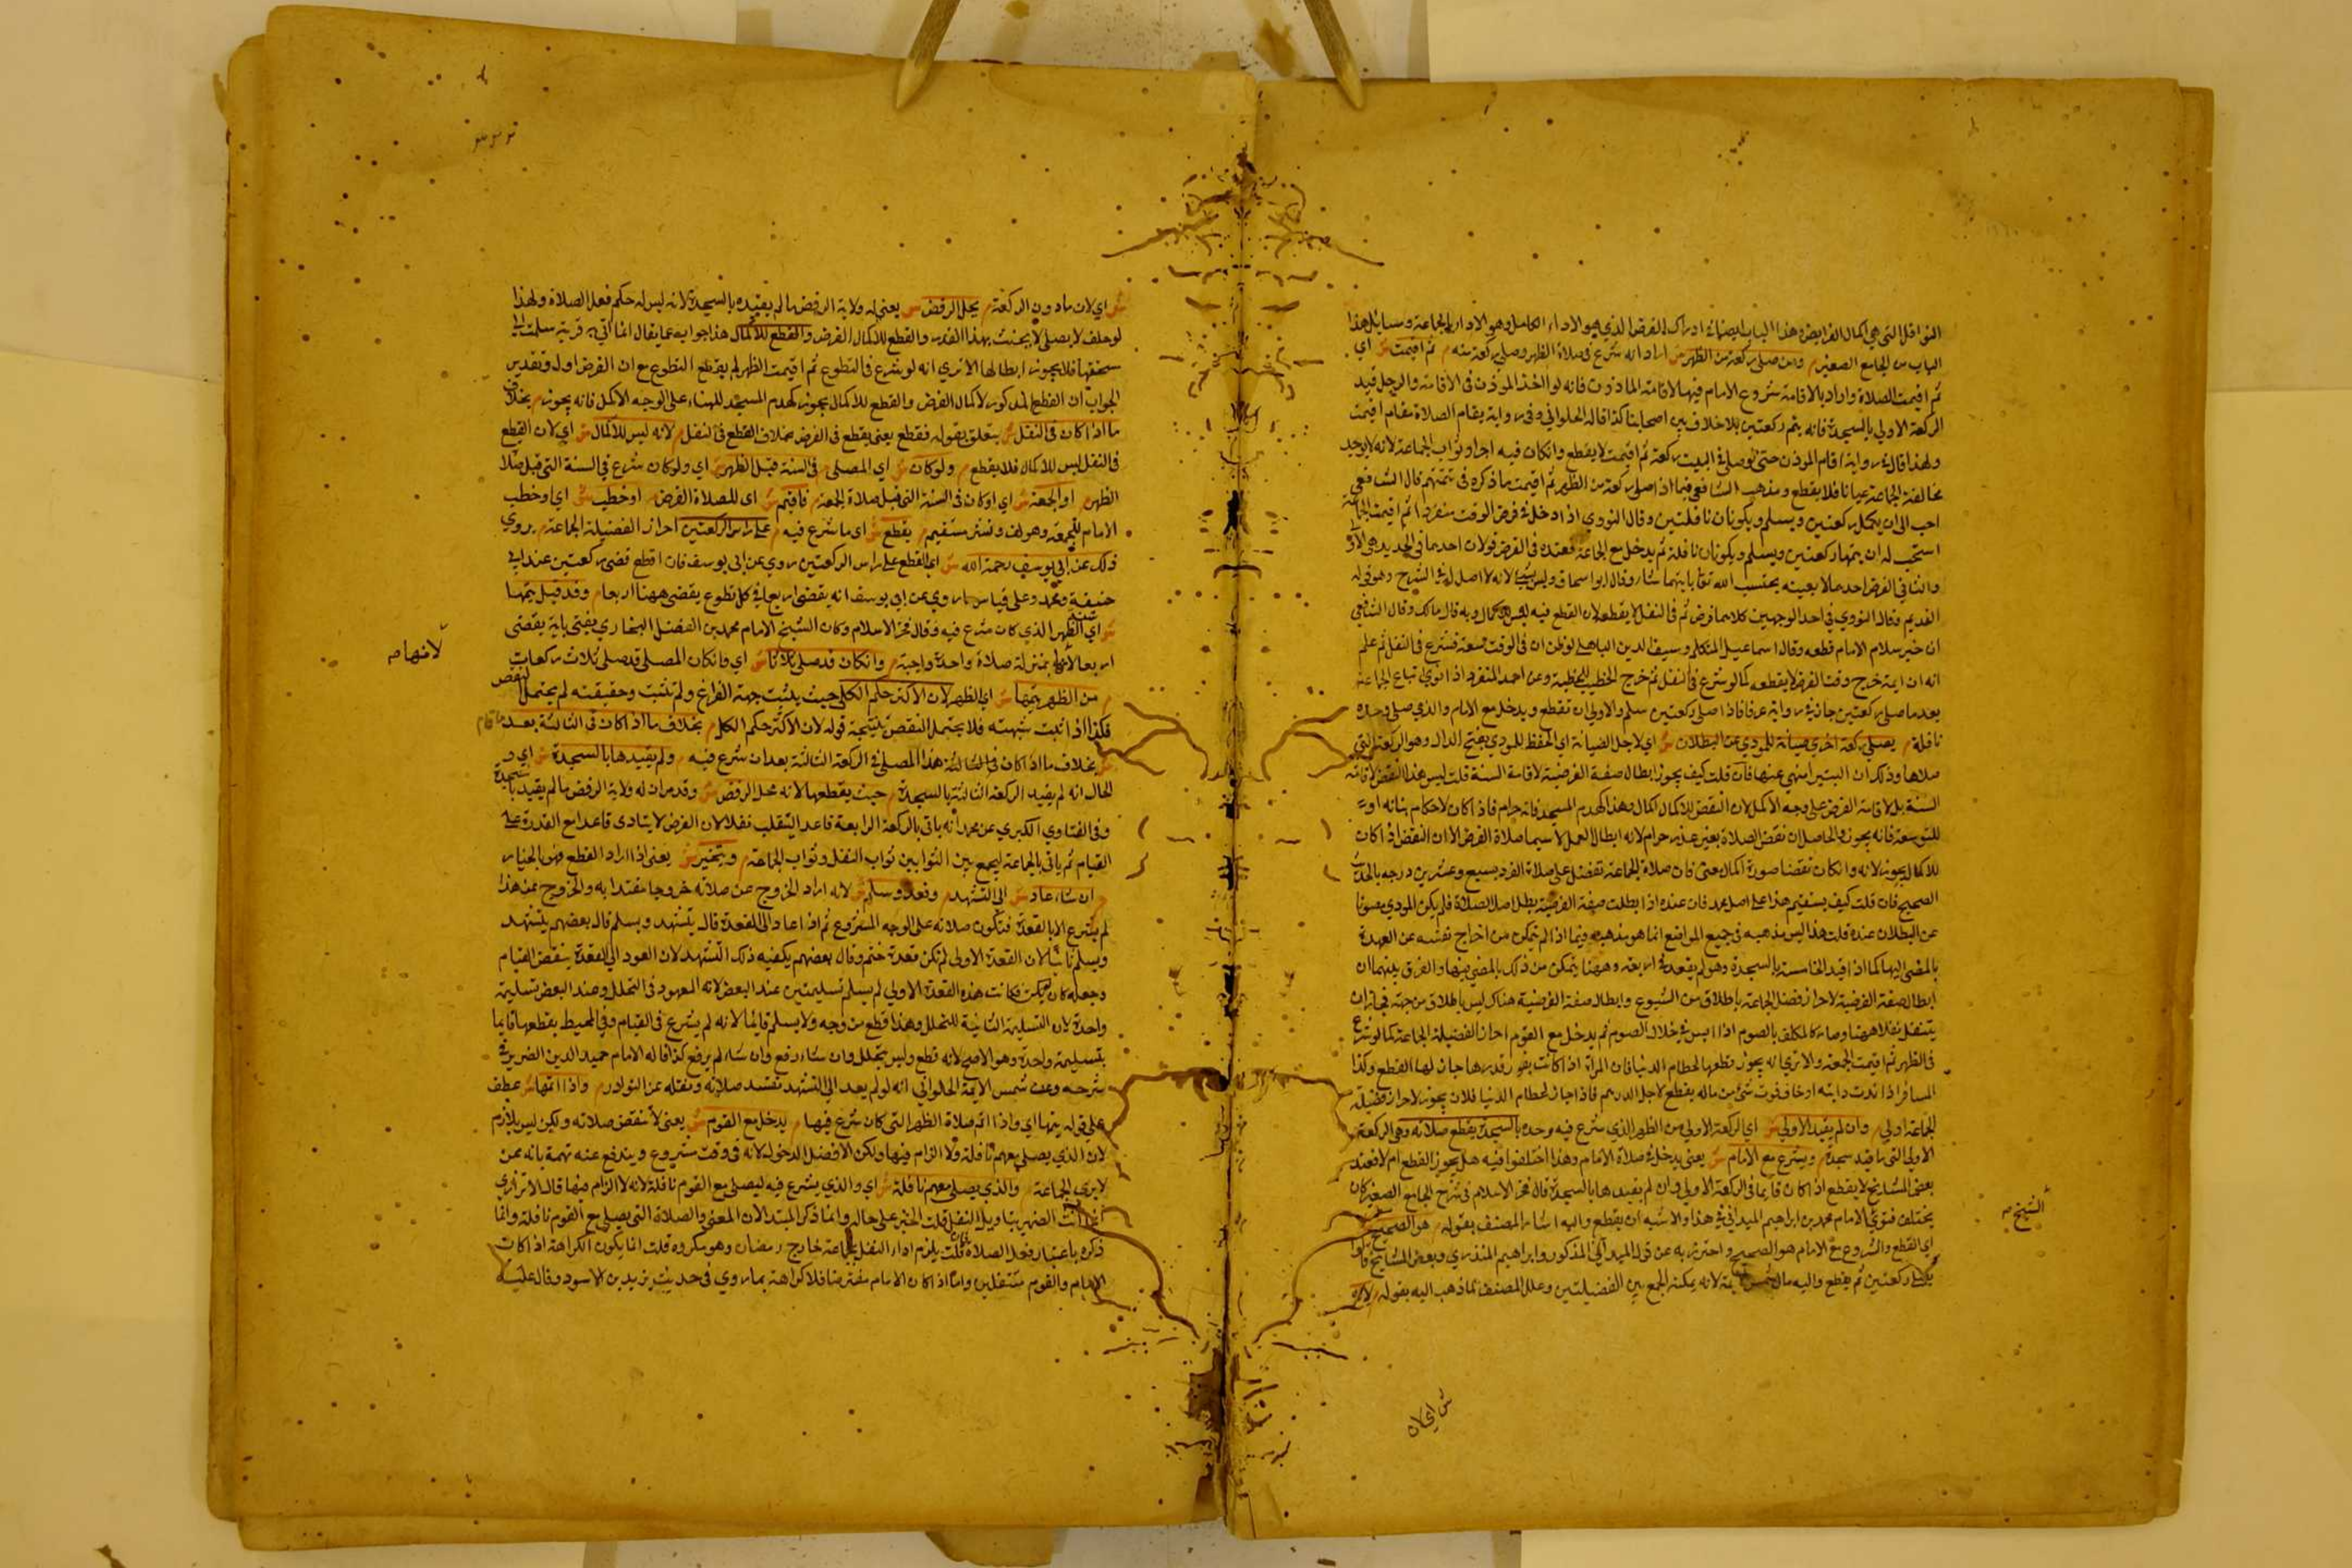 النوافل التي هي اكمال الفرايض وهذا الباب لصيانة ادراك الفرض الذي هو الاداء الكامل وهو الاداء بالجماعة ومسايل هذا
الباب من الجامع الصغير م ومن صلى ركعة من الظهر ش اراد انه شرع في صلاة الظهر وصلى ركعة منه م ثم اقيمت ش اي
ثم اقيمت الصلاة واراد بالاقامة شروع الامام فيها لا اقامة الماذون فانه لو اخذ الموذن في الاقامة والرجل قيد
الركعة الاولى بالسجدة فانه يتم ركعتين بلا خلاف بين اصحابنا كذا قاله الحلواني وفي رواية يقام الصلاة مقام اقيمت
ولهذا قال في رواية اقام الموذن حتى لو صلى في البيت ركعة ثم اقيمت لا يقطع وان كان فيه احراز ثواب الجماعة لانه لا يوجد
مخالفة الجماعة عيانا فلا يقطع ومذهب الشافعي فيما اذا صلى ركعة من الظهر ثم اقيمت ما ذكره في تتمتهم قال الشافعي
احب الى ان يكمل ركعتين ويسلم ويكونان نافلتين وقال النووي اذا دخل في فرض الوقت منفردا ثم اقيمت الجماعة
استحب له ان يتمها ركعتين ويسلم ويكونان نافلة ثم يدخل مع الجماعة فعنده في الفرض قولان احدهما في الجديد هي الاولى
والثاني الفرض احدهما لا بعينه يحتسب الله تعالى بايتهما شاء وقال ابو اسحاق وليس بشيء لانه لا اصل له في الشرع وهو قوله
القديم وقال النووي في احد الوجهين كلاهما فرض ثم في النفل لا يقطع لان القطع فيه ليس للاكمال وبه قال مالك وقال الشافعي
ان خيف سلام الامام قطعه وقال اسماعيل المتكلم وسيف الدين الباهلي لو ظن ان في الوقت سعة فشرع في النفل ثم علم
انه ان اتمه خرج وقت الفرض لا يقطعه كما لو شرع في النفل ثم خرج الخطيب للخطبة وعن احمد المنفرد اذا نوى اتباع الجماعة
بعد ما صلى ركعتين جاز في رواية عنه فاذا صلى ركعتين سلم والاولى ان تقطع ويدخل مع الامام والذي صلى وحده
نافلة م يصلي ركعة اخرى صيانة للمودى عن البطلان ش اي لاجل الصيانة اي الحفظ للمودى بفتح الدال وهو الركعة التي
صلاها وذلك ان البتيرا منهي عنها فان قلت كيف يجوز ابطال صفة الفرضية لاقامة السنة قلت ليس هذا النقض لاقامة
السنة بل لاقامة الفرض على وجه الاكمل لان النقض للاكمال اكمال وهذا كهدم المسجد فانه حرام فاذا كان لاحكام بنائه او
للتوسعة فانه يجوز والحاصل ان نقض الصلاة بغير عذر حرام لانه ابطال العمل لا سيما صلاة الفرض الا ان النقض اذا كان
للاكمال يجوز لانه وان كان نقضا صورة اكمال معنى فان صلاة الجماعة تفضل على صلاة الفرد بسبع وعشرين درجة بالحديث
الصحيح فان قلت كيف يستقيم هذا على اصل محمد فان عنده اذا بطلت صفة الفرضية بطل اصل الصلاة فلم يكن المودى مصونا
عن البطلان عنده قلت هذا ليس مذهبه في جميع المواضع انما هو مذهبه فيما اذا لم يتمكن من اخراج نفسه عن العهدة
بالمضي اليها كما اذا قيد الخامسة بالسجدة وهو لم يقعد في الرابعة وههنا يتمكن من ذلك بالمضي فيها والفرق بينهما ان
ابطال صفة الفرضية لاحراز فضل الجماعة باطلاق من الشروع وابطال صفة الفرضية هناك ليس باطلاق من جهته فجاز ان
يتنفل نفلا ههنا وصار كالمكلف بالصوم اذا ايس في خلال الصوم ثم يدخل مع القوم احراز الفضيلة الجماعة كما لو شرع
في الظهر ثم اقيمت الجمعة والا ترى انه يجوز قطعها لحطام الدنيا فان المراة اذا كانت يفور قدرها جاز لها القطع وكذا
المسافر اذا ندت دابته او خاف فوت شيء من ماله يقطع لاجل الدرهم فاذا جاز لحطام الدنيا فلان يجوز لاحراز فضيلة
الجماعة اولى م وان لم يقيد الاولى ش اي الركعة الاولى من الظهر الذي شرع فيه وحده بالسجدة يقطع صلاته وهي الركعة
الاولى التي ما قيد سجدة م ويشرع مع الامام ش يعني يدخل في صلاة الامام وهذا اختلفوا فيه هل يجوز القطع ام لا فعند
بعض المشايخ لا يقطع اذا كان قايما في الركعة الاولى وان لم يقيدها بالسجدة قال فخر الاسلام في شرح الجامع الصغير كان
يختلف فتوى الامام محمد بن ابراهيم الميداني في هذا والاشبه ان يقطع واليه اشار المصنف بقوله م هو الصحيح ش
اي القطع والشروع مع الامام هو الصحيح واحترز به عن قول الميداني المذكور وابراهيم المنذري وبعض المشايخ قالوا
يصلي ركعتين ثم يقطع واليه مال شمس الايمة لانه يمكنه الجمع بين الفضيلتين وعلل المصنف لما ذهب اليه بقوله م لانه
الشيخ صح
ش اي لان
ش اي لان ما دون الركعة م بمحل الرفض ش يعني له ولاية الرفض ما لم يقيده بالسجدة لانه ليس له حكم فعل الصلاة ولهذا
لو حلف لا يصلي لا يحنث بهذا القدر والقطع للاكمال الفرض والقطع للاكمال هذا جواب عما يقال انما اتى به قربة سلمت الى
مستحقها فلا يجوز ابطالها الا ترى انه لو شرع في التطوع ثم اقيمت الظهر لم يقطع التطوع مع ان الفرض اولى وتقدير
الجواب ان القطع المذكور لاكمال الفرض والقطع للاكمال يجوز كهدم المسجد للبناء على الوجه الاكمل فانه يجوز م بخلاف
ما اذا كان في النفل ش يتعلق بقوله فقطع يعني يقطع في الفرض بخلاف القطع في النفل م لانه ليس للاكمال ش اي لان القطع
في النفل ليس للاكمال فلا يقطع م ولو كان ش اي المصلي م في السنة قبل الظهر ش اي ولو كان شرع في السنة التي قبل صلا
الظهر م او الجمعة ش اي او كان في السنة التي قبل صلاة الجمعة م فاقيم ش اي للصلاة الفرض م او خطب ش اي او خطب
الامام للجمعة وهو لف ونشر مستقيم م يقطع ش اي ما شرع فيه م على راس الركعتين احراز الفضيلة الجماعة م يروى
ذلك عن ابي يوسف رحمة الله ش اي القطع على راس الركعتين روي عن ابي يوسف فان اقطع قضى ركعتين عند ابي
حنيفة ومحمد وعلى قياس ما روي عن ابي يوسف انه يقضي اربعا في كل تطوع يقضي ههنا اربعا م وقد قيل يتمها
ش اي الظهر الذي كان شرع فيه وقال فخر الاسلام وكان الشيخ الامام محمد بن الفضل البخاري يفتي بانه يقضي
اربعا لانها بمنزلة صلاة واحدة واجبة م وان كان قد صلى ثلاثا ش اي وان كان المصلي قد صلى ثلاث ركعات
م من الظهر يتمها ش اي الظهر لان الاكثر حكم الكل حيث يثبت جهة الفراغ ولم تثبت وحقيقته لم يحتمل النقض
فكذا اذا ثبت شبهته فلا يحتمل النقض نتيجة قوله لان الاكثر حكم الكل م بخلاف ما اذا كان في الثالثة بعد ما قام
ش بخلاف ما اذا كان في الثالثة هذا المصلي في الركعة الثالثة بعد ان شرع فيه م ولم يقيدها بالسجدة ش اي و
الحال انه لم يقيد الركعة الثالثة بالسجدة م حيث يقطعها لانه محل الرفض ش وقد مر ان له ولاية الرفض ما لم يقيد بالسجدة
وفي الفتاوي الكبرى عن محمد انه ياتي بالركعة الرابعة قاعدا لتنقلب نفلا لان الفرض لا يتادى قاعدا مع القدرة على
القيام ثم ياتي بالجماعة ليجمع بين الثوابين ثواب النفل وثواب الجماعة م ويتخير ش يعني اذا اراد القطع فهو بالخيار
م ان شاء عاد ش الى التشهد م وقعد وسلم ش لانه اراد الخروج عن صلاته خروجا معتدا به والخروج عن هذا
لم يشرع الا بالقعدة فتكون صلاته على الوجه المشروع ثم اذا عاد الى القعدة قال يتشهد ويسلم قال بعضهم يتشهد
ويسلم ثانيا لان القعدة الاولى لم تكن قعدة ختم وقال بعضهم يكفيه ذلك التشهد لان العود الى القعدة ينقض القيام
وجعله كان لم يكن فكانت هذه القعدة الاولى ثم يسلم تسليمتين عند البعض لانه المعهود في التحلل وعند البعض تسليمة
واحدة لان التسليمة الثانية للتحلل وهذا قطع من وجه ولا يسلم قايما لانه لم يشرع في القيام وفي المحيط يقطعها قايما
بتسليمة واحدة وهو الاصح لانه قطع وليس بتحلل وان شاء رفع وان شاء لم يرفع كذا قاله الامام حميد الدين الضرير في
شرحه وعن شمس الايمة الحلواني انه لو لم يعد الى التشهد تفسد صلاته ونقله عن النوادر م واذا اتمها ش عطف
على قوله يتمها اي واذا اتم صلاة الظهر التي كان شرع فيها م يدخل مع القوم ش يعني لا تنقض صلاته ولكن ليس بلازم
لان الذي يصلي معهم نافلة ولا الزام فيها ولكن الافضل الدخول لانه في وقت مشروع ويندفع عنه تهمة بانه ممن
لا يرى الجماعة م والذي يصلي معهم نافلة ش اي والذي يشرع فيه ليصلي مع القوم نافلة لانه لا الزام فيها قال الاترازي
انما انث الضمير بتاويل النفل قلت الخبر على حاله وانما ذكر المبتدا لان المعنى والصلاة التي يصلي مع القوم نافلة وانما
ذكره باعتبار فعل الصلاة فان قلت يلزم اداء النفل بجماعة خارج رمضان وهو مكروه قلت انما يكون الكراهة اذا كان
الامام والقوم متنفلين واما اذا كان الامام مفترضا فلا كراهة بما روي في حديث يزيد بن الاسود وقال عليه
لانها صح